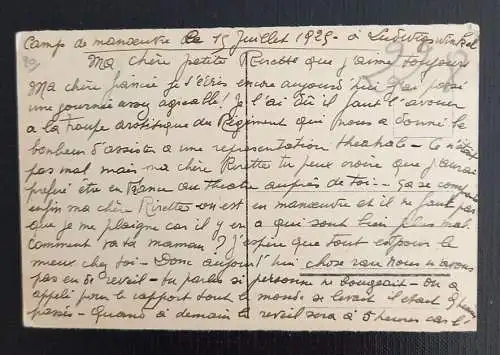 Camp de manœuvre le 15 Juillet 1925 - à Ludwigswinkel
Ma chère petite Rirette que j'aime toujours
Ma chère fiancée je t'écris encore aujourd'hui j'ai passé
une journée assez agréable! Je l'ai dû il faut l'avouer
a la troupe artistique du Régiment qui nous a donné le
bonheur d'assister a une représentation théatrale - Ce n'était
pas mal mais ma chère Rirette tu peux croire que j'aurai
préféré être en France au théatre auprès de toi - Ça se comprend
enfin ma chère Rirette on est en manœuvre et il ne faut pas
que je me plaigne car il y en a qui sont bien plus mal.
Comment va ta maman? J'espère que tout est pour le
mieux chez toi - Donc aujourd'hui chose rare nous n'avons
pas eu de reveil - tu parles si personne ne bougeait - On a
appelé pour le rapport tout le monde se levait il était 9 heures
passés - Quand à demain le reveil sera à 5 heures car l'